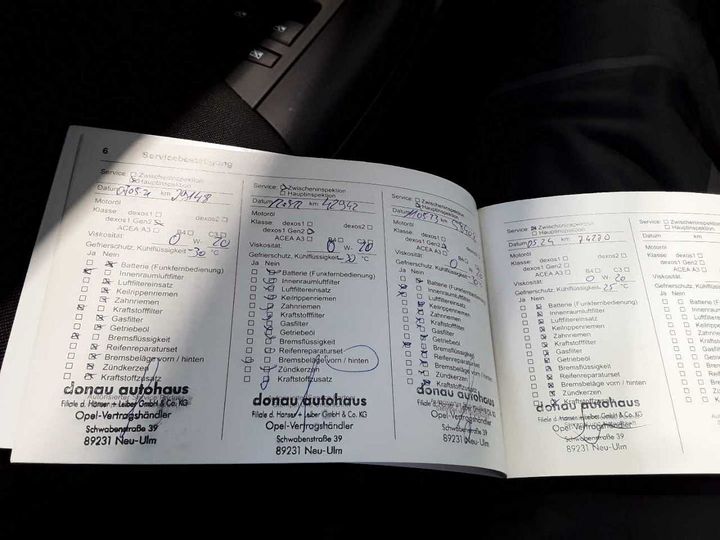 6 Servicebestätigung
Service: Zwischeninspektion
Hauptinspektion
Datum km 29148
Motoröl
Klasse: dexos1 dexos2
dexos1 Gen2
ACEA A3 B4 C3
Viskosität: 0 W- 20
Gefrierschutz, Kühlflüssigkeit -30 °C
Ja Nein
Batterie (Funkfernbedienung)
Innenraumluftfilter
Luftfiltereinsatz
Keilrippenriemen
Zahnriemen
Kraftstofffilter
Gasfilter
Getriebeöl
Bremsflüssigkeit
Reifenreparaturset
Bremsbeläge vorn / hinten
Zündkerzen
Kraftstoffzusatz
donau autohaus
Filiale d. Hanser + Leiber GmbH & Co. KG
Opel-Vertragshändler
Schwabenstraße 39
89231 Neu-Ulm
Service: Zwischeninspektion
Hauptinspektion
Datum km 42942
Motoröl
Klasse: dexos1 dexos2
dexos1 Gen2
ACEA A3 B4 C3
Viskosität: 0 W- 20
Gefrierschutz, Kühlflüssigkeit -32 °C
Ja Nein
Batterie (Funkfernbedienung)
Innenraumluftfilter
Luftfiltereinsatz
Keilrippenriemen
Zahnriemen
Kraftstofffilter
Gasfilter
Getriebeöl
Bremsflüssigkeit
Reifenreparaturset
Bremsbeläge vorn / hinten
Zündkerzen
Kraftstoffzusatz
donau autohaus
Filiale d. Hanser + Leiber GmbH & Co. KG
Opel-Vertragshändler
Schwabenstraße 39
89231 Neu-Ulm
Service: Zwischeninspektion
Hauptinspektion
Datum 11.05.23 km
Motoröl
Klasse: dexos1 dexos2
dexos1 Gen2
ACEA A3 B4 C3
Viskosität: 0 W-
Gefrierschutz, Kühlflüssigkeit °C
Ja Nein
Batterie (Funkfernbedienung)
Innenraumluftfilter
Luftfiltereinsatz
Keilrippenriemen
Zahnriemen
Kraftstofffilter
Gasfilter
Getriebeöl
Bremsflüssigkeit
Reifenreparaturset
Bremsbeläge vorn / hinten
Zündkerzen
Kraftstoffzusatz
donau autohaus
Opel-Vertragshändler
Schwabenstraße 39
89231 Neu-Ulm
Service: Zwischeninspektion
Hauptinspektion
Datum 05.24 km 74270
Motoröl
Klasse: dexos1 dexos2
dexos1 Gen2
ACEA A3 B4 C3
Viskosität: 0 W- 20
Gefrierschutz, Kühlflüssigkeit 25 °C
Ja Nein
Batterie (Funkfernbedienung)
Innenraumluftfilter
Luftfiltereinsatz
Keilrippenriemen
Zahnriemen
Kraftstofffilter
Gasfilter
Getriebeöl
Bremsflüssigkeit
Reifenreparaturset
Bremsbeläge vorn / hinten
Zündkerzen
Kraftstoffzusatz
donau autohaus
Filiale d. Hanser + Leiber GmbH & Co. KG
Opel-Vertragshändler
Schwabenstraße 39
89231 Neu-Ulm
Service:
Datum
Motoröl
Klasse:
Viskosität:
Gefrierschutz,
Ja Nein